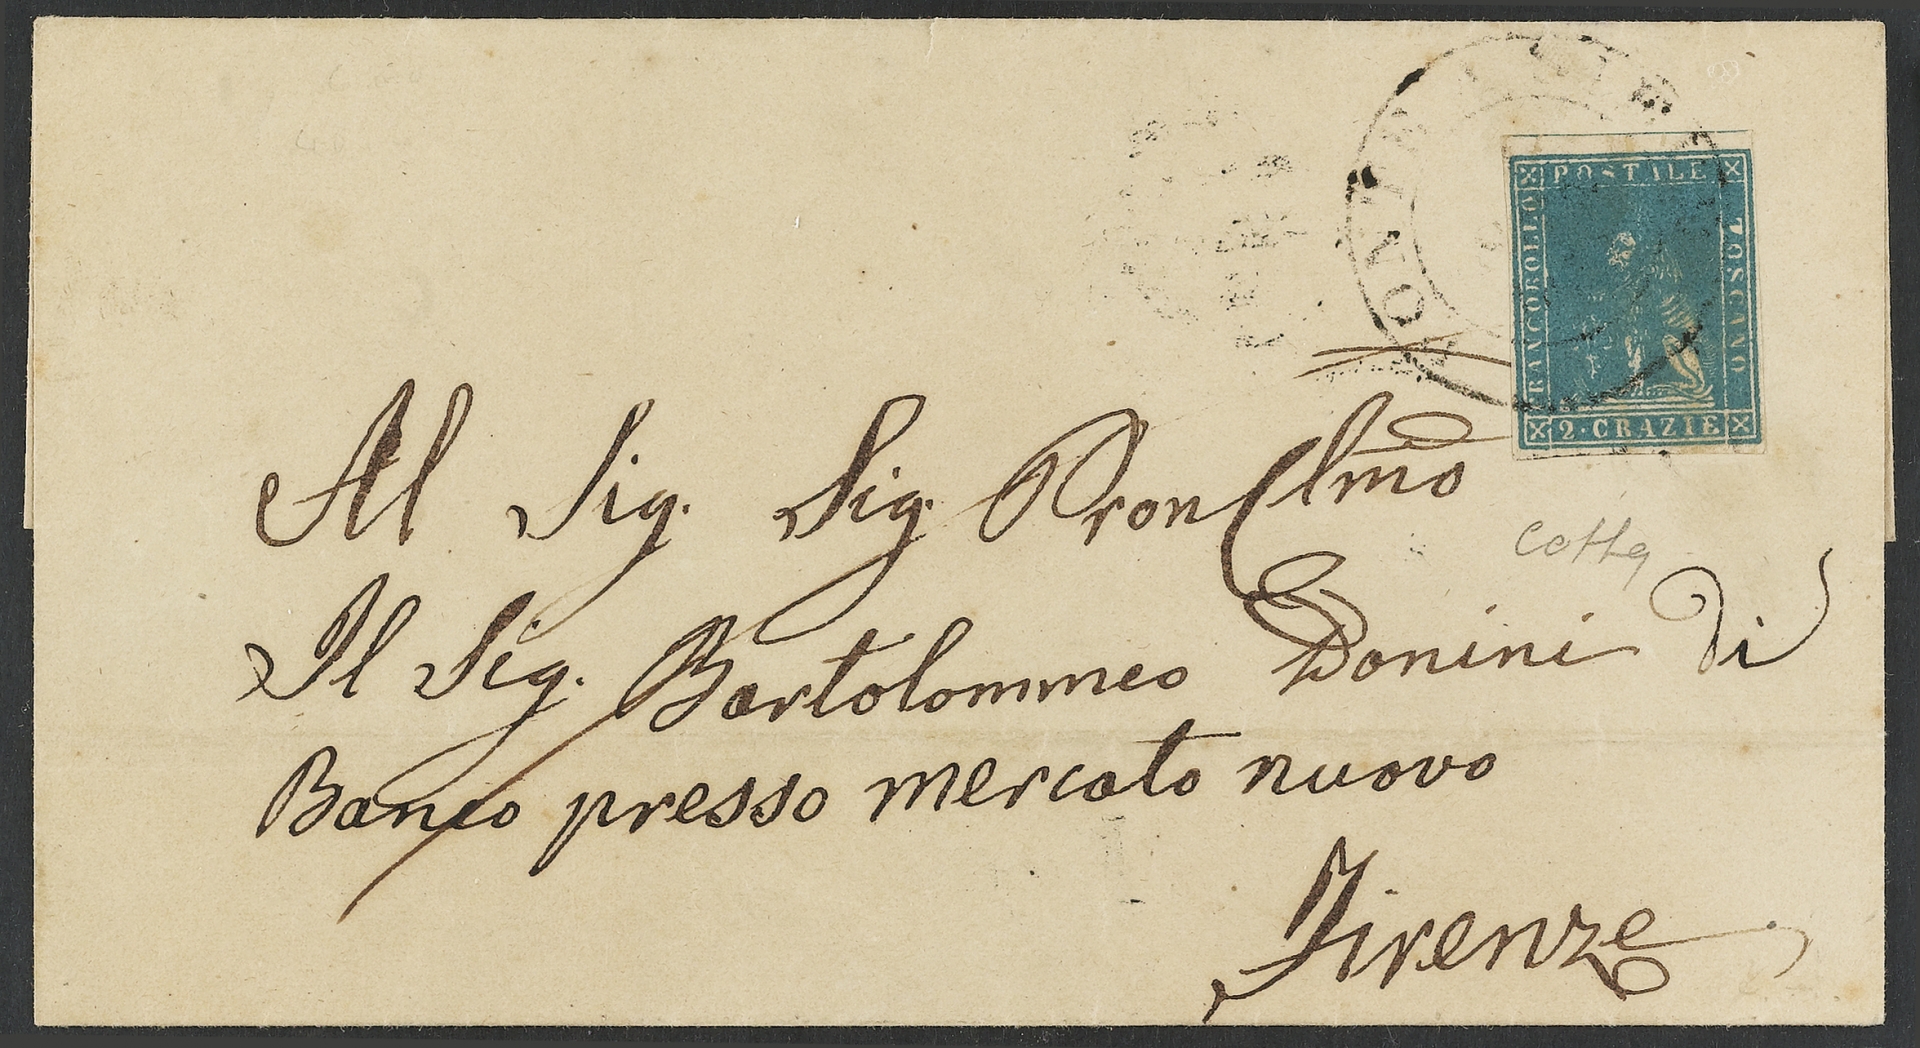 POSTALE
FRANCOBOLLO
TOSCANO
2·CRAZIE
Al Sig. Sig. Pron Clmo
Il Sig. Bartolommeo Donini di
Banco presso mercato nuovo
Firenze